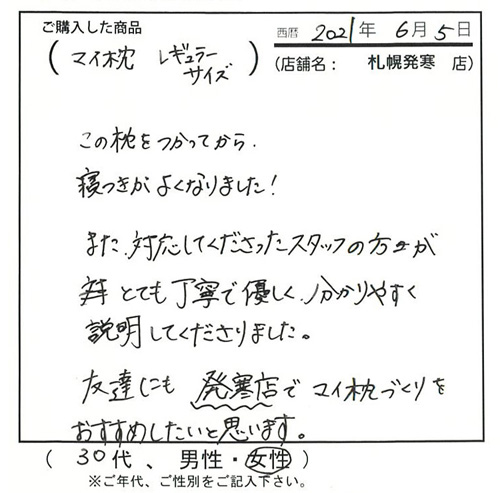 ご購入した商品
西暦 2021年 6月 5日
( マイ枕 レギュラーサイズ )
(店舗名： 札幌発寒 店)
この枕をつかってから、
寝つきがよくなりました！
また、対応してくださったスタッフの方々が
とても丁寧で優しく、分かりやすく
説明してくださりました。
友達にも 発寒店で マイ枕づくりを
おすすめしたいと思います。
( 30代 、 男性・女性 )
※ご年代、ご性別をご記入下さい。